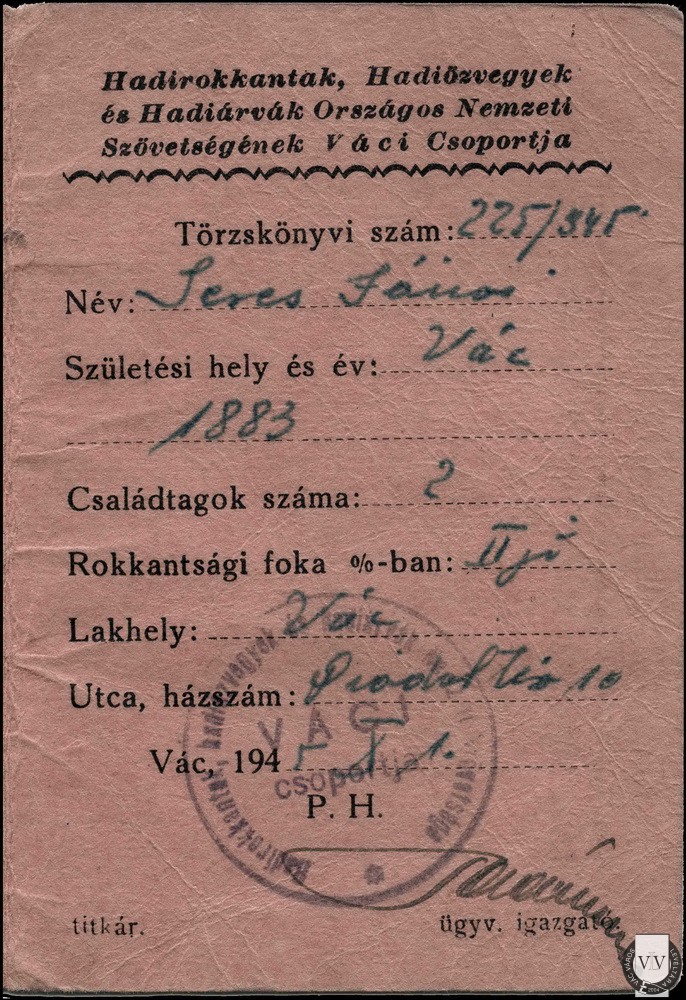 Hadirokkantak, Hadiözvegyek
és Hadiárvák Országos Nemzeti
Szövetségének Váci Csoportja
Törzskönyvi szám: 225/345
Név: Seres János
Születési hely és év: Vác
1883
Családtagok száma: 2
Rokkantsági foka %-ban: II
Lakhely: Vác
Utca, házszám: 10
Vác, 1945 X. 1.
P. H.
VÁCI
csoportja
titkár.
ügyv. igazgató.